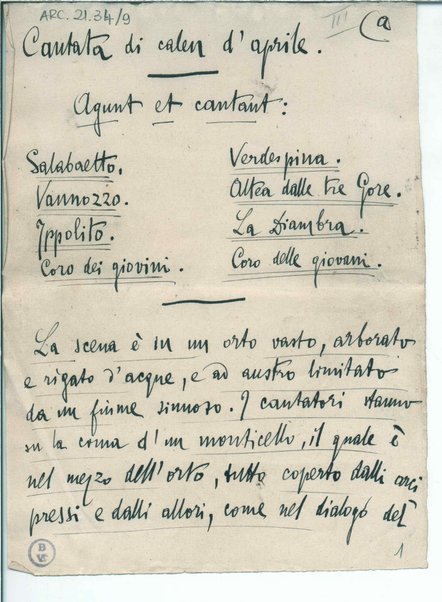 ARC. 21.34/9
III
(a
Cantata di calen d'aprile.
Agunt et cantant:
Salabaetto. Verdespina.
Vannozzo. Altea dalle tre Gore.
Ippolito. La Diambra.
Coro dei giovini. Coro delle giovani.
La scena è in un orto vasto, arborato
e rigato d'acque, e ad austro limitato
da un fiume sinuoso. I cantatori stanno
su la coma d'un monticello, il quale è
nel mezzo dell'orto, tutto coperto dalli arci
pressi e dalli allori, come nel dialogo del
1